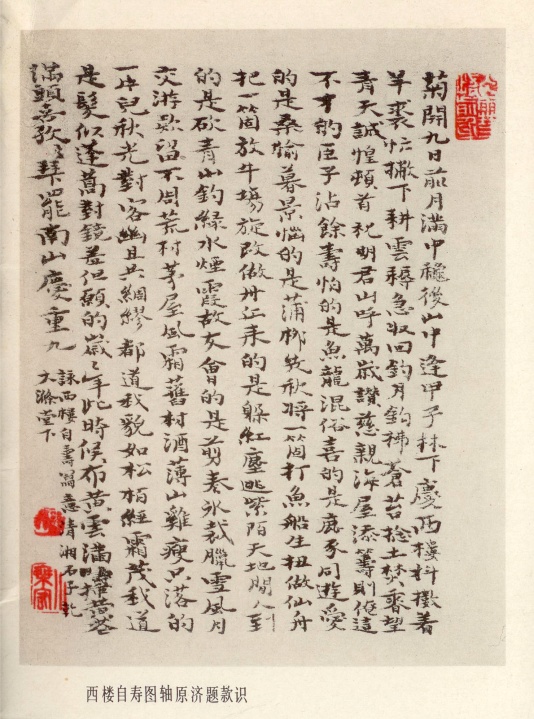 菊開九日前月滿中穐後山中逢甲子林下慶西樓抖擻着
羊裘忙撇下耕雲耨急收回釣月鈎拂蒼苔捻土焚香望
青天誠惶頓首祝明君山呼萬歲讚慈親海屋添籌則俺這
不才的臣子沾餘壽怕的是魚龍混俗喜的是鹿豕同遊愛
的是桑榆暮景惱的是蒲柳秋將一箇打魚船生扭做仙舟
把一箇放牛場旋改做丹丘来的是躲紅塵逃紫陌天地間人到
的是砍青山釣綠水煙霞故友會的是剪春氷裁臘雪風月
交游留不周荒村茅屋風霜舊村酒薄山雞瘦只落的
一片秋光對客幽且共綢繆都道我貌如松柏經霜茂我道
是髮似蓬蒿對鏡羞但願的歲歲年年此時候布黄雲滿插黄花
滿頭南山慶重九
詠西樓自壽寫意清湘石子
大滌堂下
西楼自寿图轴原济题款识